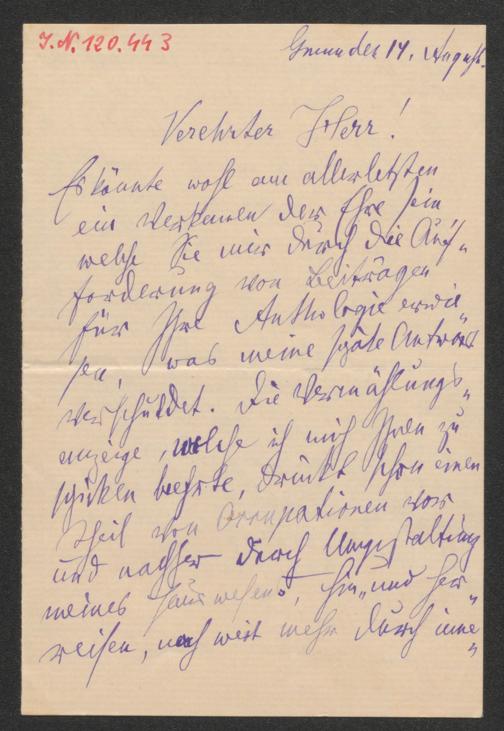 J.N. 120.443
Gmunden 14. August.
Verehrter Herr!
Es könnte wohl am allerletzten
ein Verkennen der Ehre sein
welche Sie mir durch die Auf„
forderung von Beiträgen
für Ihre Anthologie erwie„
sen, was meine späte Antwort
verschuldet. Die Vermählungs„
anzeige, welche ich mich Ihnen zu
schicken beehrte, drückt schon einen
Theil von Occupationen vor
und nachher durch Umgestaltung
meines Hauswesens, hin„und her„
reisen, noch weit mehr durch inne„